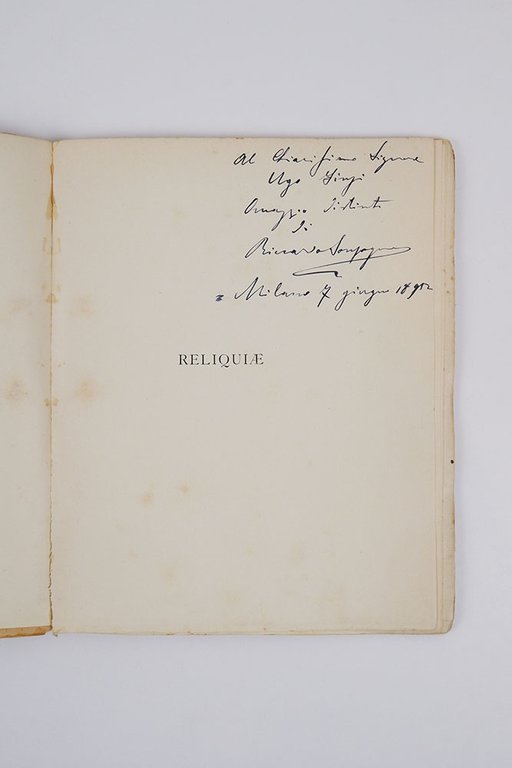 Al Chiarissimo Signore
Ugo
Omaggio distinto
di
Riccardo Sonzogno
Milano 7 giugno 1892
RELIQUIÆ